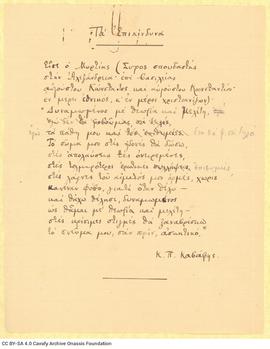 Τα Επικίνδυνα
Είπε ο Μυρτίας (Σύρος σπουδαστής
στην Αλεξάνδρεια· επί βασιλείας
αυγούστου Κώνσταντος και αυγούστου Κωνσταντίου·
εν μέρει εθνικός, κ' εν μέρει χριστιανίζων)·
«Δυναμωμένος με θεωρία και μελέτη,
εγώ τα πάθη μου
Το σώμα μου στες ηδονές θα δώσω,
στες απολαύσεις τες ονειρεμένες,
στες τολμηρότερες ερωτικές επιθυμίες,
στες λάγνες του αίματός μου ορμές, χωρίς
κανέναν φόβο, γιατί όταν θέλω —
και θάχω θέλησι, δυναμωμένος
ως θάμαι με θεωρία και μελέτη —
στες κρίσιμες στιγμές θα ξαναβρίσκω
το πνεύμα μου, σαν πριν, ασκητικό.»
Κ. Π. Καβάφης
CC BY-SA 4.0 Cavafy Archive Onassis Foundation